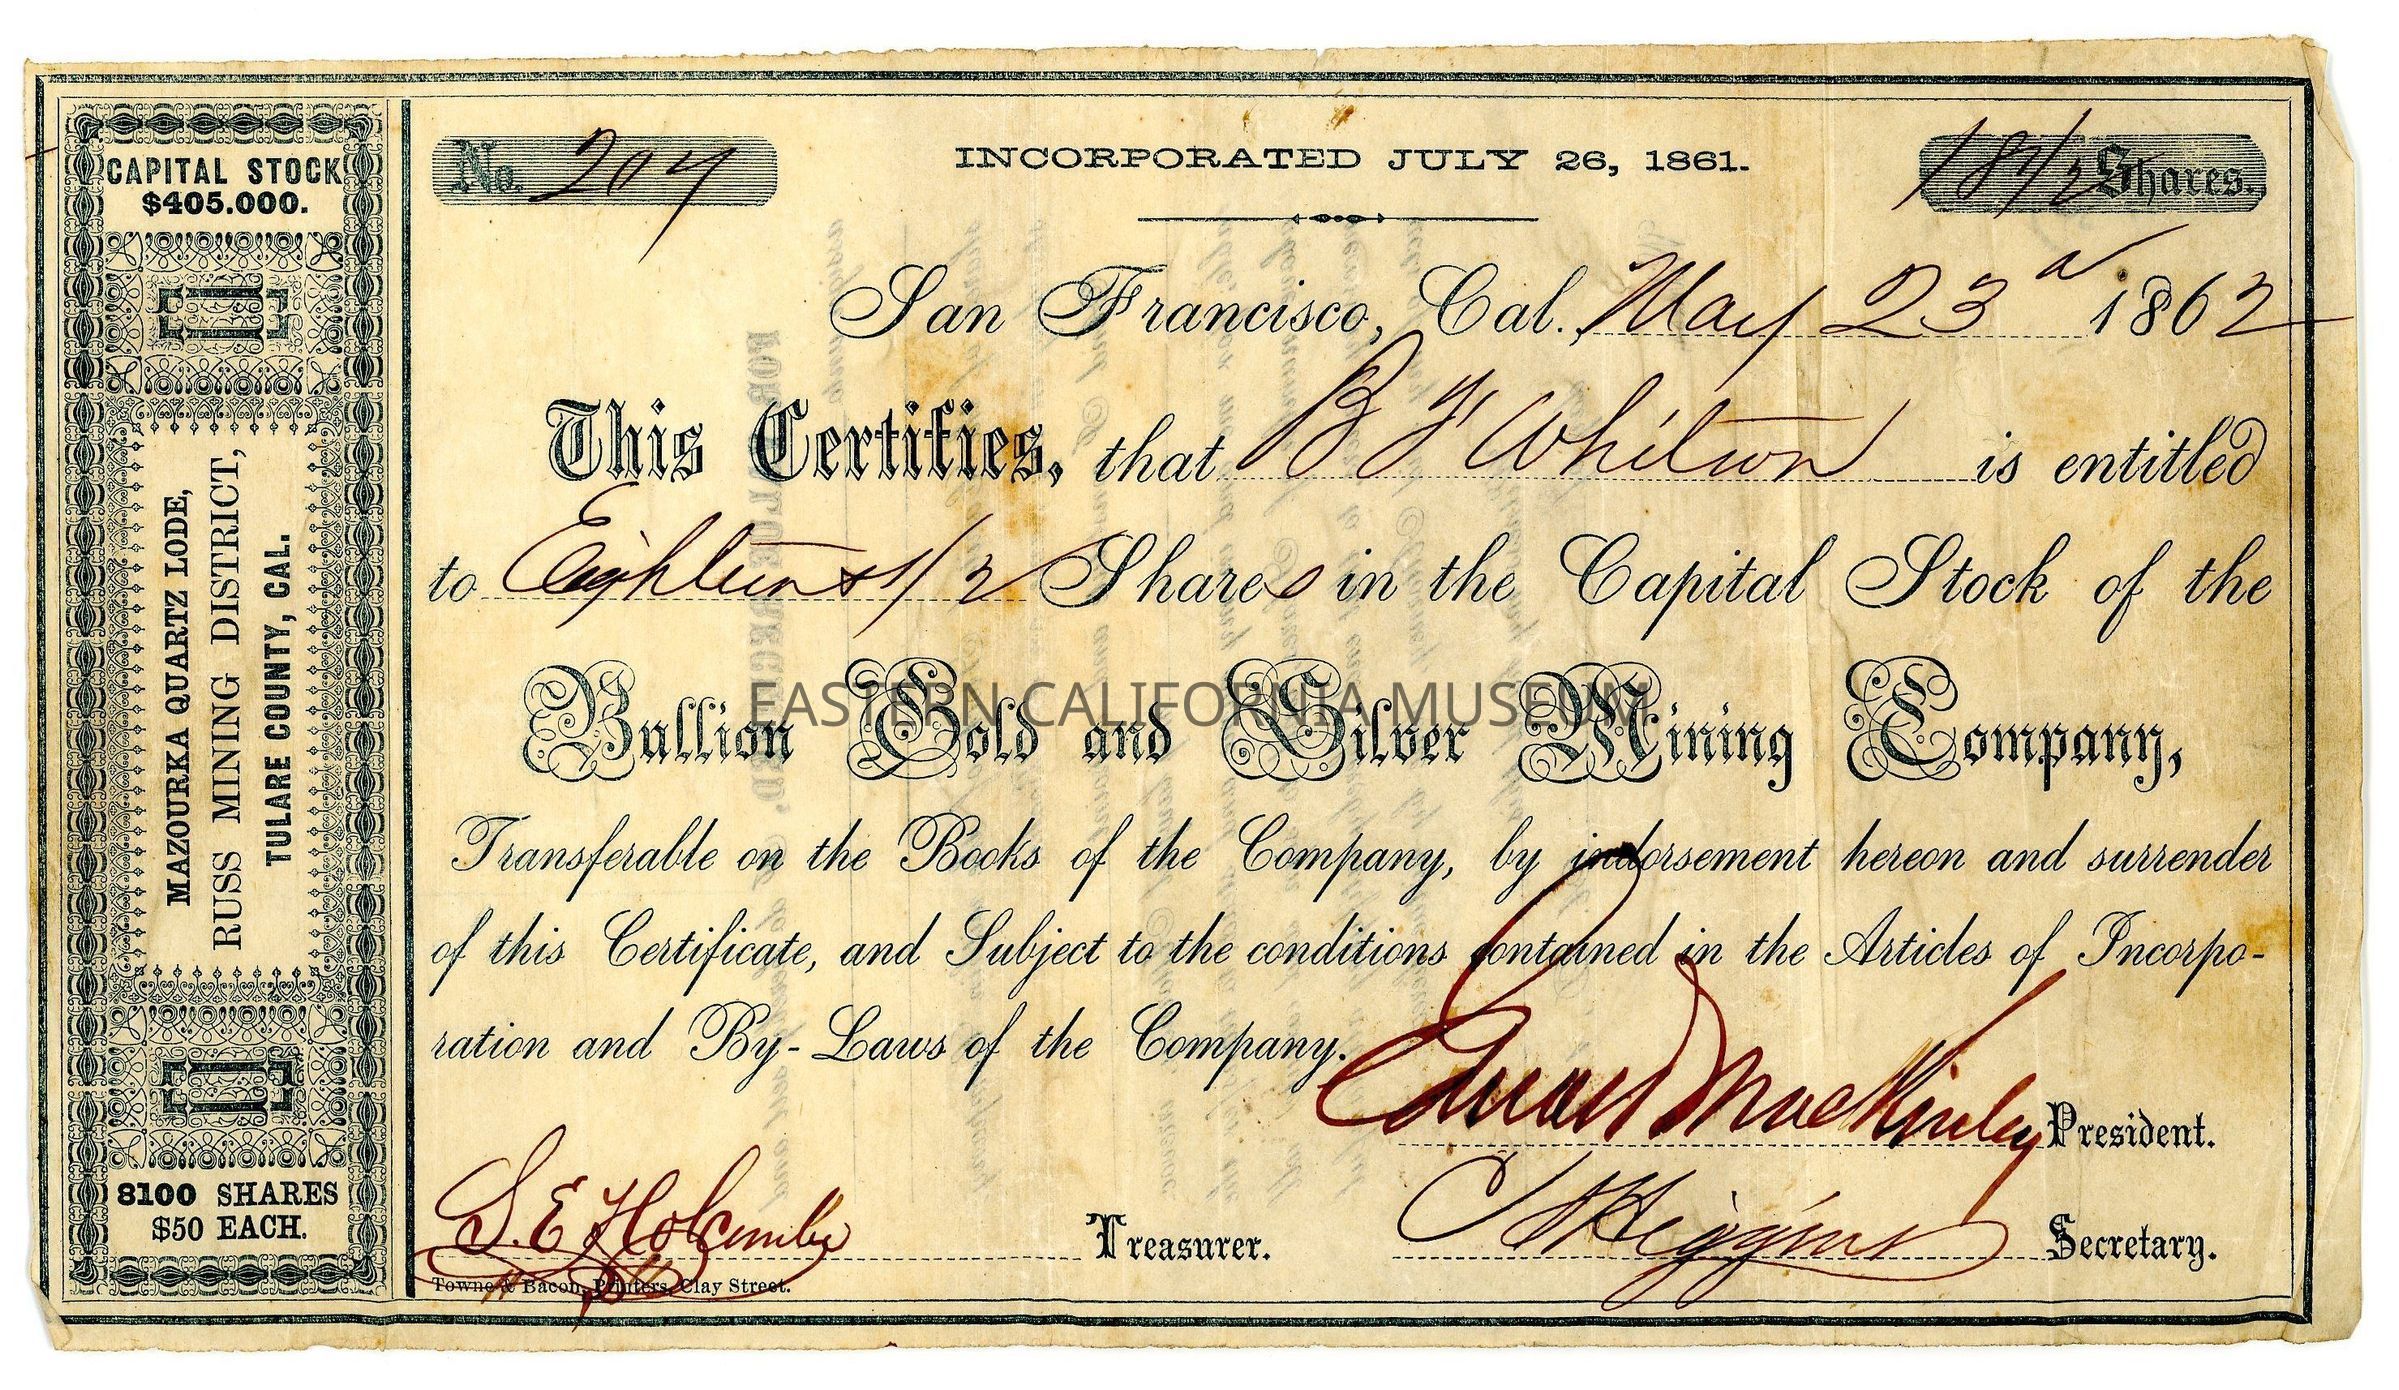 CAPITAL STOCK
$405.000.
MAZOURKA QUARTZ LODE,
RUSS MINING DISTRICT,
TULARE COUNTY, CAL.
8100 SHARES
$50 EACH.
No. 204
INCORPORATED JULY 26, 1861.
18 1/2 Shares.
San Francisco, Cal., May 23d 1862
This Certifies, that B F Whitton is entitled
to Eighteen & 1/2 Shares in the Capital Stock of the
Bullion Gold and Silver Mining Company,
EASTERN CALIFORNIA MUSEUM
Transferable on the Books of the Company, by indorsement hereon and surrender
of this Certificate, and Subject to the conditions contained in the Articles of Incorpo-
ration and By-Laws of the Company.
Edward MacKinley President.
S. E. Holcombe Treasurer.
Higgins Secretary.
Towne & Bacon, Printers, Clay Street.